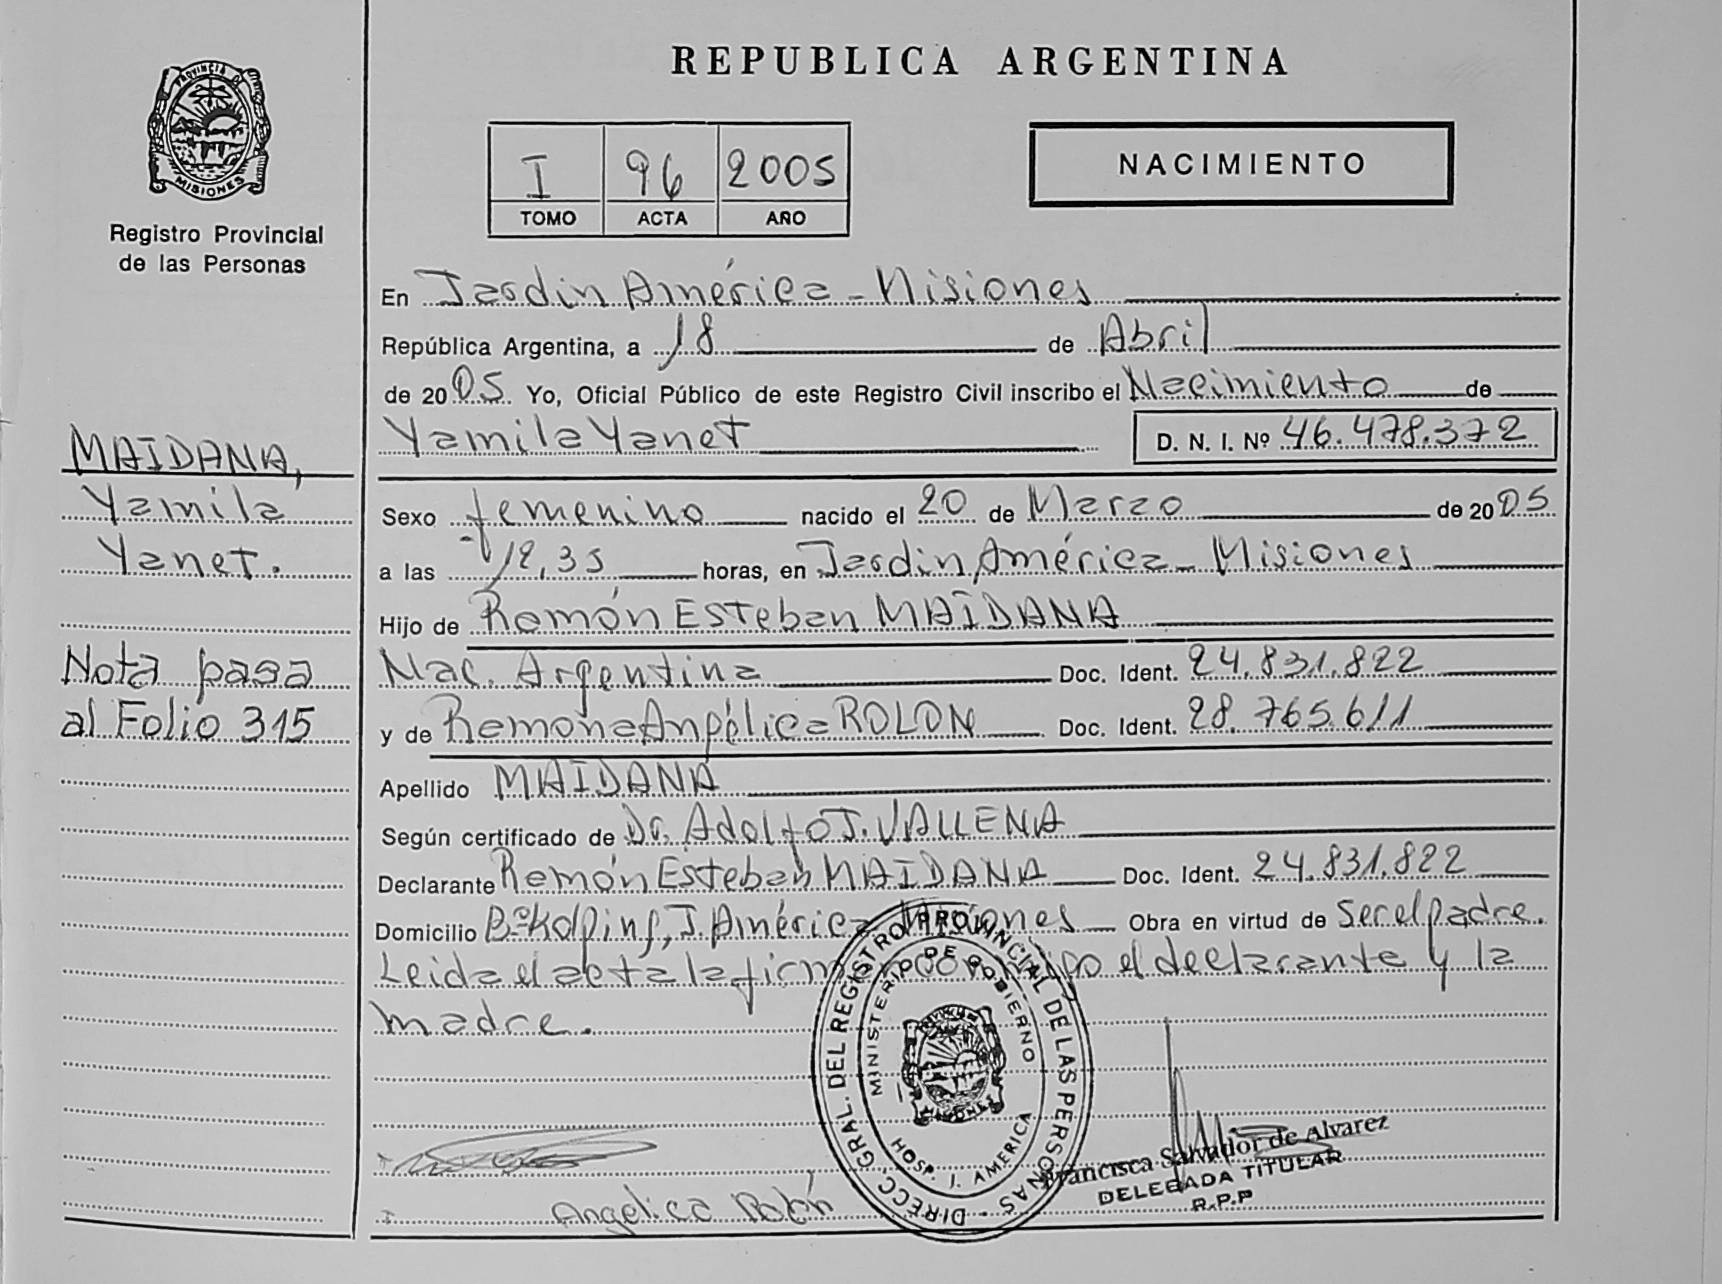 PROVINCIA DE
MISIONES
Registro Provincial
de las Personas
REPUBLICA ARGENTINA
I 96 2005
TOMO ACTA AÑO
NACIMIENTO
En Jardin América - Misiones
República Argentina, a 18 de Abril
de 2005 Yo, Oficial Público de este Registro Civil inscribo el Nacimiento de
Yamila Yanet D. N. I. Nº 46.478.372
Sexo femenino nacido el 20 de Marzo de 2005
a las 12,35 horas, en Jardin América - Misiones
Hijo de Ramón Esteban MAIDANA
Nac. Argentina Doc. Ident. 24.831.822
y de Ramona Angélica ROLON Doc. Ident. 28.765.611
Apellido MAIDANA
Según certificado de Dr. Adolfo J. VALLENA
Declarante Ramón Esteban MAIDANA Doc. Ident. 24.831.822
Domicilio Bº Kolping, J. América Misiones Obra en virtud de Ser el padre.
Leida el acta la firman conmigo el declarante y la
madre.
MAIDANA,
Yamila
Yanet.
Nota pasa
al Folio 315
DIRECC. GRAL. DEL REGISTRO PROVINCIAL DE LAS PERSONAS
MINISTERIO DE GOBIERNO
MISIONES
HOSP. J. AMERICA
Angelica Rolón
Francisca Salvador de Alvarez
DELEGADA TITULAR
R.P.P